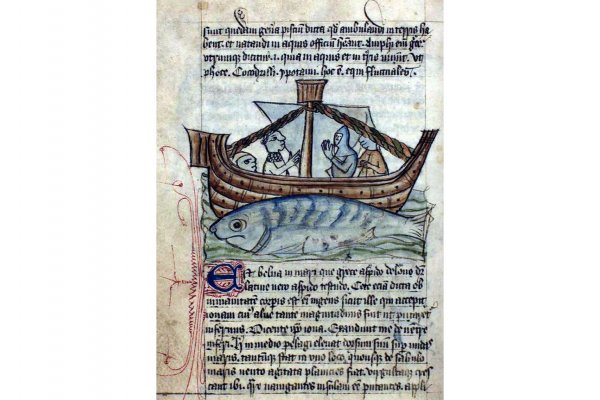 sunt quedam gen̄a pisciū dicta qd̄ ambulandi in terris ha
bent. et natandi in aquis officiū hēant. Amphi em̄ gre
dicitur .i. quia in aquis et in tris uiuūt. ut
phoce. Cocodrilli. ypotami. hoc ē eqi fluctuales.
Est belua in mari que grece aspido delone dr
latine uero aspido testudo. Cete etiā dicta ob
inmanitatem corpis est em̄ ingens sicut ille qui accepit
ionam cui' alue tante magnitudinis fuit ut putaret
infernus. Dicente ipō iona. Exaudiuit me de uentre
inferi. in medio pelagi eleuat dorsum suū sup undas
maris. stat in uno loco. de sabulo
maris uento agitata planicies fiat.
cant ibi. nauigantes insulam eē putantes. appli